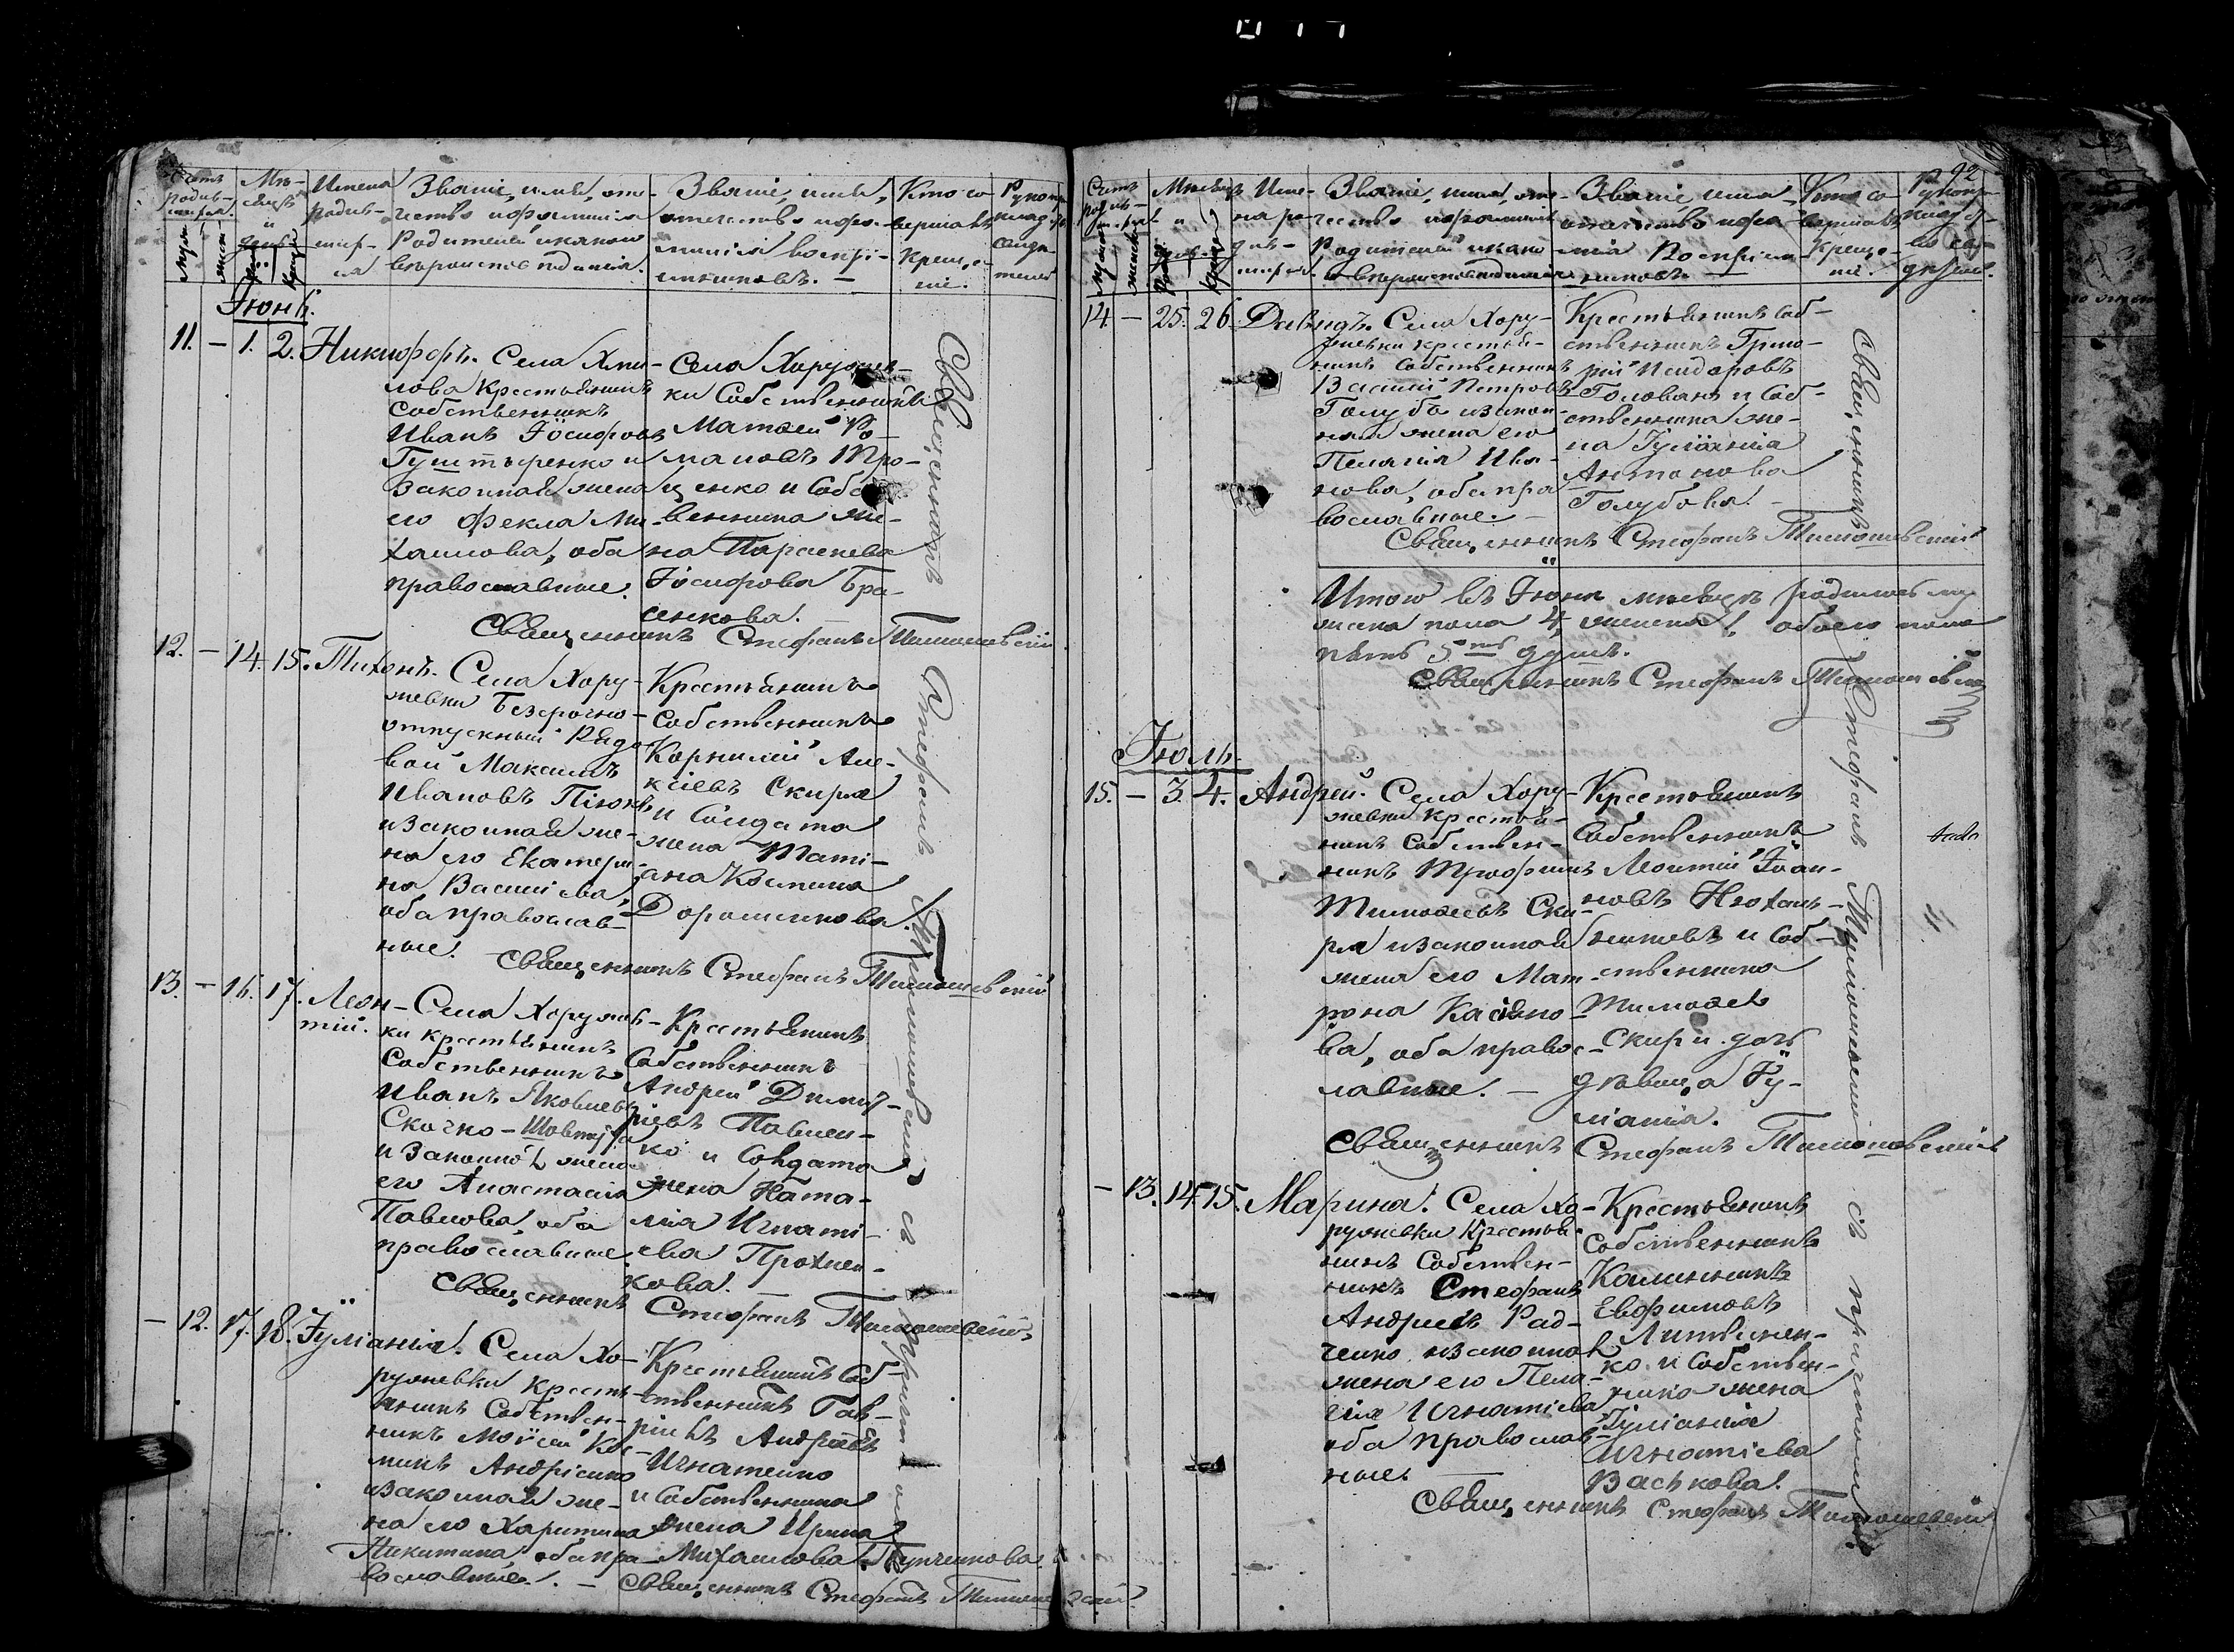 Счетъ родив-
шихся.
Муж.
женс.
Мѣ-
сяцъ
и
день
рожд.
крещ.
Имена
родив-
ших-
ся
Званіе, имя, оте-
чество и фамилія
Родителей и какого
вѣроисповѣданія.
Званіе, имя,
отчество и фа-
милія воспрі-
емниковъ. —
Кто со
вершалъ
крещ.е-
ніе.
Рукопр
иклад.
свидѣ-
телей
Іюнь.
11. — 1. 2. Никифоръ.
Села Хми-
лова Крестьянинъ
Собственникъ
Иванъ Іосифовъ
и
Законная жена
его Фекла Ми-
хаилова, оба
православные.
Села Хоружев-
ки Собственникъ
Матвей Ро-
мановъ Про-
ценко и Собст-
венника же-
на Параскева
Іосифова Бра-
сенкова. —
Священникъ Стефанъ Тимошевскій
12. — 14. 15. Тихонъ.
Села Хору-
жевки Безсрочно-
отпускный Рядо-
вой Максимъ
Ивановъ
и законная же-
на его Екатери-
на Василіева,
оба православ-
ные.
Крестьянинъ
Собственникъ
Корнилій Але-
ксіевъ Скиря
и Солдата
жена Таті-
ана Космина
Дорошенкова.
Священникъ Стефанъ Тимошевскій
13. — 16. 17. Леон-
тій.
Села Хоружев-
ки крестьянинъ
Собственникъ
Иванъ Яковлевъ
Скочко-
и Законная жена
его Анастасія
Павлова, оба
православные
Крестьянинъ
Собственникъ
Андрей Димит-
ріевъ Павлен-
ко и Солдата
жена Ната-
лія Игнаті-
ева Прохнен-
кова. —
Священникъ Стефанъ Тимошевскій
— 12. 17. 18. Іуліанія.
Села Хо-
ружевки Кресть-
янинъ Собствен-
никъ Моисей Кос-
минъ Андріенко
и законная же-
на его Харитина
Никитина, оба пра-
вославные. —
Крестьянинъ Соб-
ственникъ Гав-
ріилъ Андреевъ
Игнатенко
и Собственника
жена Ирина
Михаилова
Священникъ Стефанъ Тимошевскій
Священникъ Стефанъ Тимошевскій съ причтомъ
92
Счетъ
родив-
шихся
Мужеск.
женска
Мѣсяцъ
и
день
рожд.
крещ.
Име-
на ро-
див-
шихся.
Званіе, имя, оте-
чество и фамилія
Родителей и како-
го вѣроисповѣданія
Званіе имя
отечество и фами-
лія Воспріем-
никовъ —
Кто со
вершалъ
Креще-
ніе.
Рукопр-
иклад с-
во сви-
дѣтел.
14. — 25. 26. Давидъ.
Села Хору-
жевки крестья-
нинъ Собственникъ
Василій Петровъ
Голубъ и закон-
ная жена его
Пелагія Ива-
нова, оба пра
вославные. —
Крестьянинъ Соб-
ственникъ Григо-
рій Исидоровъ
Голованъ и Соб-
ственника же-
на Іуліанія
Антонова
Голубова. —
Священникъ Стефанъ Тимошевскій
Итого въ Іюнѣ мѣсяцѣ родилось му
жеска пола 4, женска 1. обоего пола
пять 5ть душъ.
Священникъ Стефанъ Тимошевскій
Іюль.
15. — 3. 4. Андрей.
Села Хору-
жевки Крестья-
нинъ Собствен-
никъ Трофимъ
Тимофеевъ Ски-
ря и законная
жена его Мат-
рона Касіяно-
ва, оба правос-
лавные. —
Крестьянинъ
Собственникъ
Леонтій Іоан-
новъ
и Соб-
ственника
Тимофея
Скири дочь
дѣвица Іу-
ліанія.
Священникъ Стефанъ Тимошевскій
— 13. 14. 15. Марина.
Села Хо-
ружевки Крестья-
нинъ Собствен-
никъ Стефанъ
Андреевъ Рад-
ченко и законная
жена его Пела-
гія Игнатіева
оба православ-
ные. —
Крестьянинъ
Собственникъ
Калинникъ
Евфимовъ
Литвинен-
ко и Собствен-
ника жена
Іуліанія
Игнатіева
Васькова.
Священникъ Стефанъ Тимошевскій
Священникъ Стефанъ Тимошевскій съ причтомъ